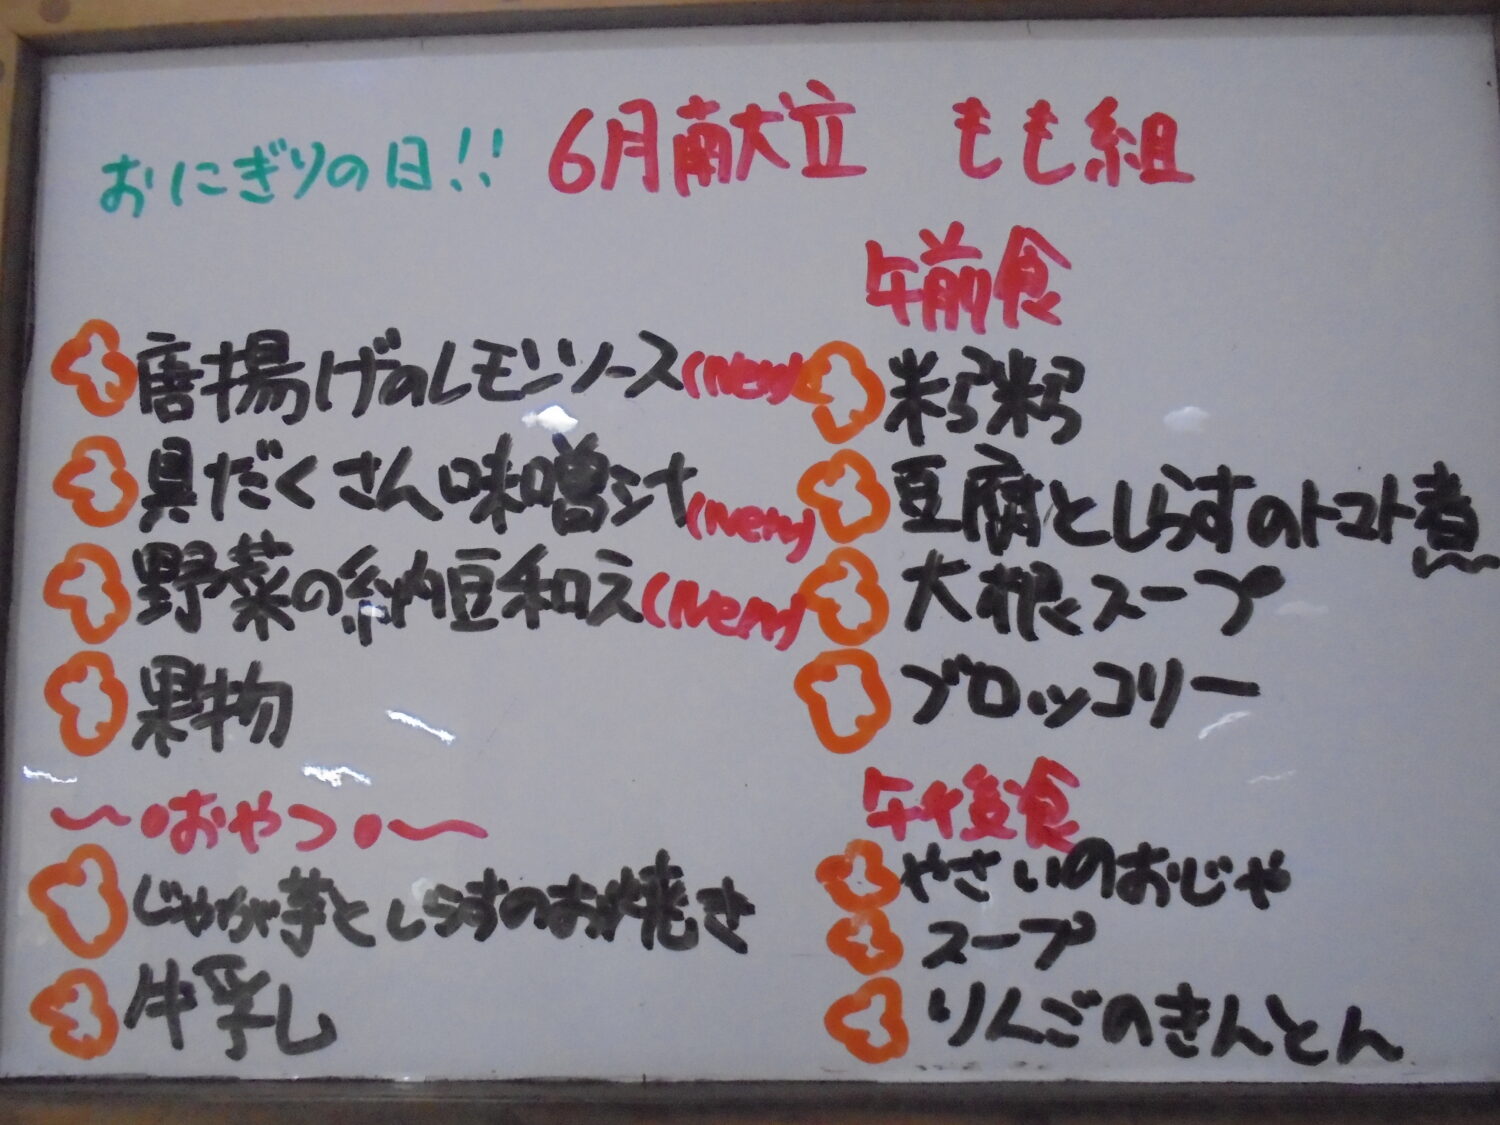 おにぎりの日!! 6月献立 もも組
唐揚げのレモンソース(New)
具だくさん味噌汁(New)
野菜の納豆和え(New)
果物
〜・おやつ・〜
じゃが芋としらすのお焼き
牛乳
午前食
粥
豆腐としらすのトマト煮
大根スープ
ブロッコリー
午後食
やさいのおじや
スープ
りんごのきんとん